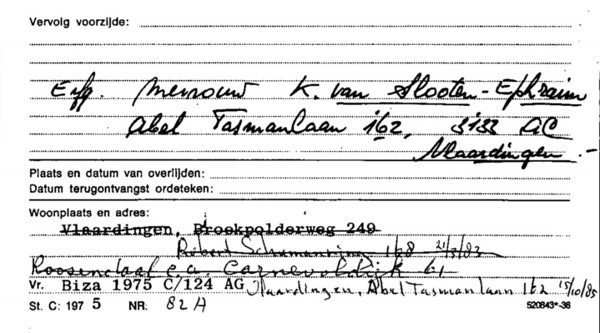 Vervolg voorzijde:
Erfg. Mevrouw K. van Slooten-Ephraim
Abel Tasmanlaan 162, 3132 AC
Vlaardingen.-
Plaats en datum van overlijden:
Datum terugontvangst ordeteken:
Woonplaats en adres:
Vlaardingen, Broekpolderweg 249
Robert Schumannring 168 21/3/83
Roosendaal e.a. Carnevaldijk 61
Vr. Biza 1975 C/124 AG Vlaardingen, Abel Tasmanlaan 162 15/10/85
St. C: 197 5 NR: 82 A 520843*-36